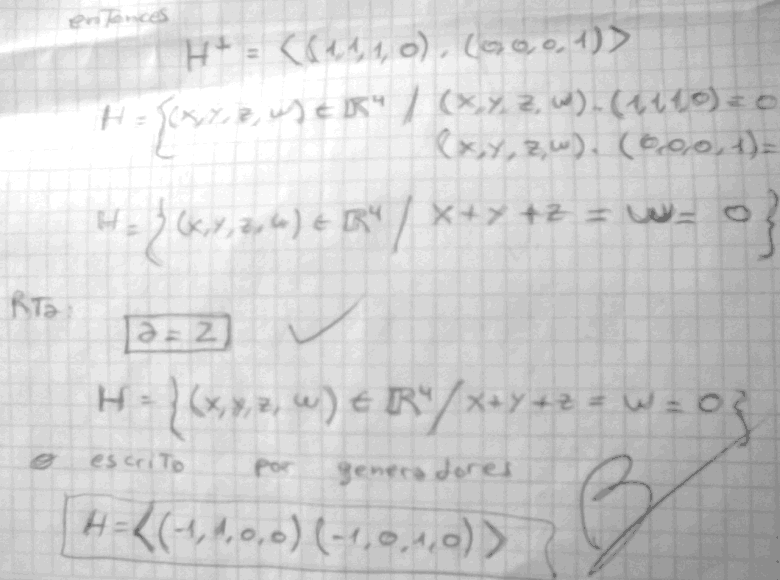 entonces
H⊥ = <(1,1,1,0), (0,0,0,1)>
H = {(x,y,z,w) ∈ ℝ⁴ / (x,y,z,w).(1,1,1,0) = 0
(x,y,z,w).(0,0,0,1) =
H = {(x,y,z,w) ∈ ℝ⁴ / x+y+z = w = 0}
RTa:
a = 2 ✓
H = {(x,y,z,w) ∈ ℝ⁴ / x+y+z = w = 0}
o escrito por generadores
H = <(-1,1,0,0) (-1,0,1,0)>
B